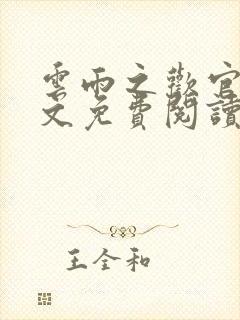 雲雨之歡官
文免費閱讀
王全和